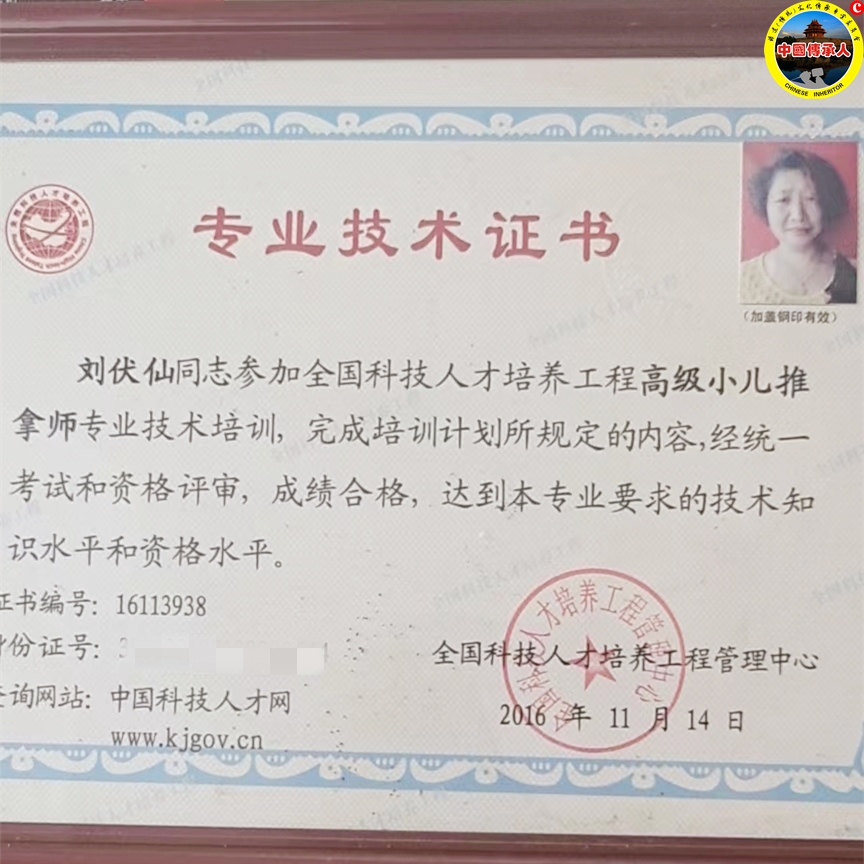 中國傳承人
CHINESE INHERITOR
专业技术证书
(加盖钢印有效)
刘伏仙同志参加全国科技人才培养工程高级小儿推
拿师专业技术培训，完成培训计划所规定的内容，经统一
考试和资格评审，成绩合格，达到本专业要求的技术知
识水平和资格水平。
证书编号：16113938
身份证号：3
查询网站：中国科技人才网
www.kjgov.cn
全国科技人才培养工程管理中心
2016 年 11 月 14 日
全国科技人才培养工程管理中心